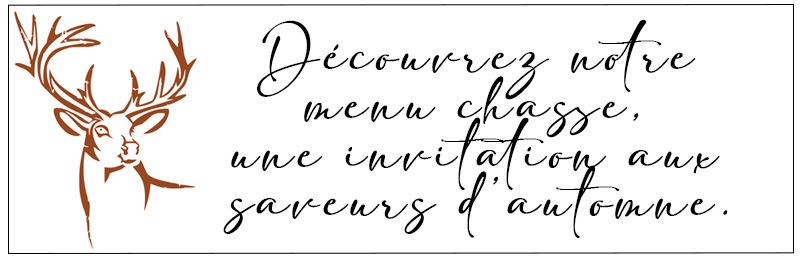 Découvrez notre
menu chasse,
une invitation aux
saveurs d'automne.